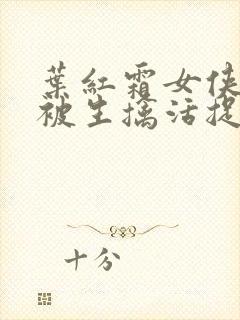 葉紅霜女俠
被生擒活捉
十分